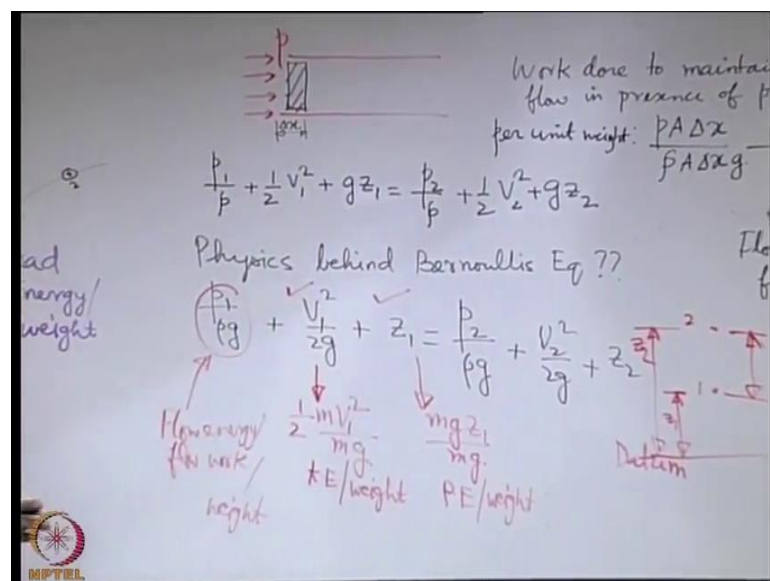 p
Δx
Work done to maintai
flow in presence of p
per unit weight: pAΔx / ρAΔxg
2
p1/ρ + 1/2 V1² + gz1 = p2/ρ + 1/2 V2² + gz2
ad
nergy/
weight
Physics behind Bernoullis Eq ??
Flo
f
p1/ρg + V1²/2g + z1 = p2/ρg + V2²/2g + z2
z2 2
1
z1
Flow energy/
flow work/
weight
1/2 mV1²/mg
KE/weight
mgz1/mg
PE/weight
Datum
NPTEL